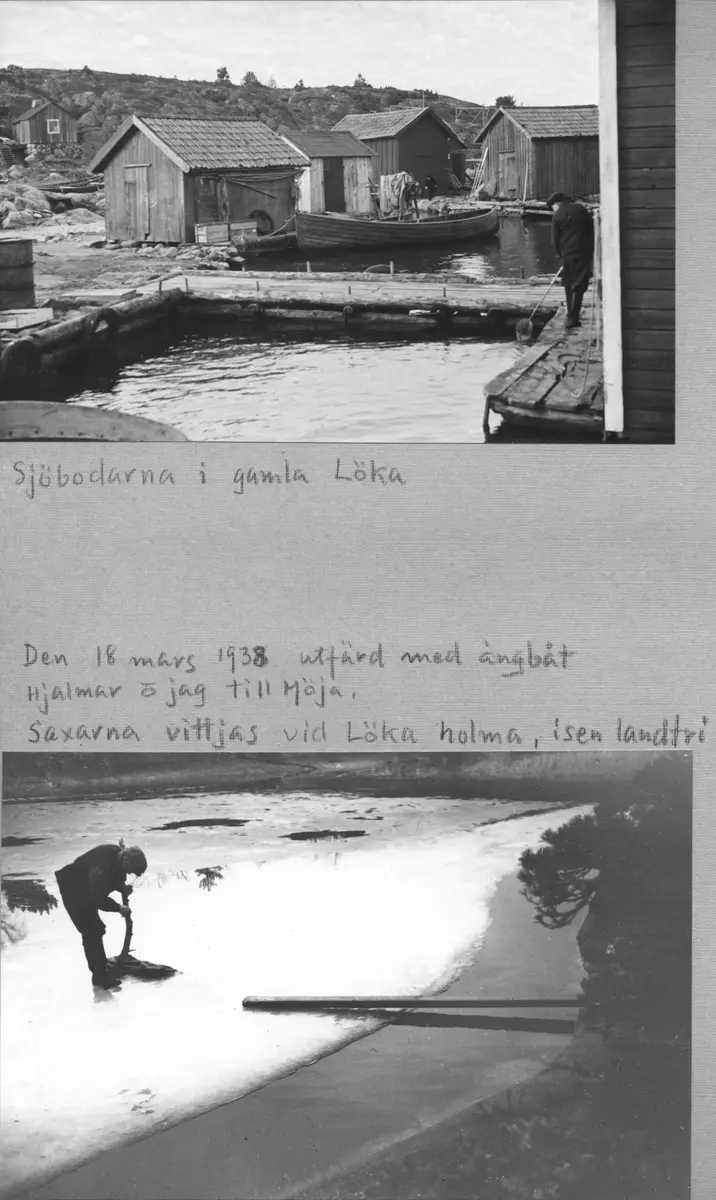 Sjöbodarna i gamla Löka
Den 18 mars 1938 utfärd med ångbåt
Hjalmar o jag till Möja.
Saxarna vittjas vid Löka holma, isen landfri